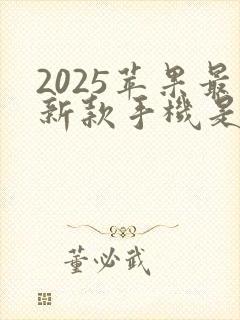 2025苹果最
新款手機是
董必武